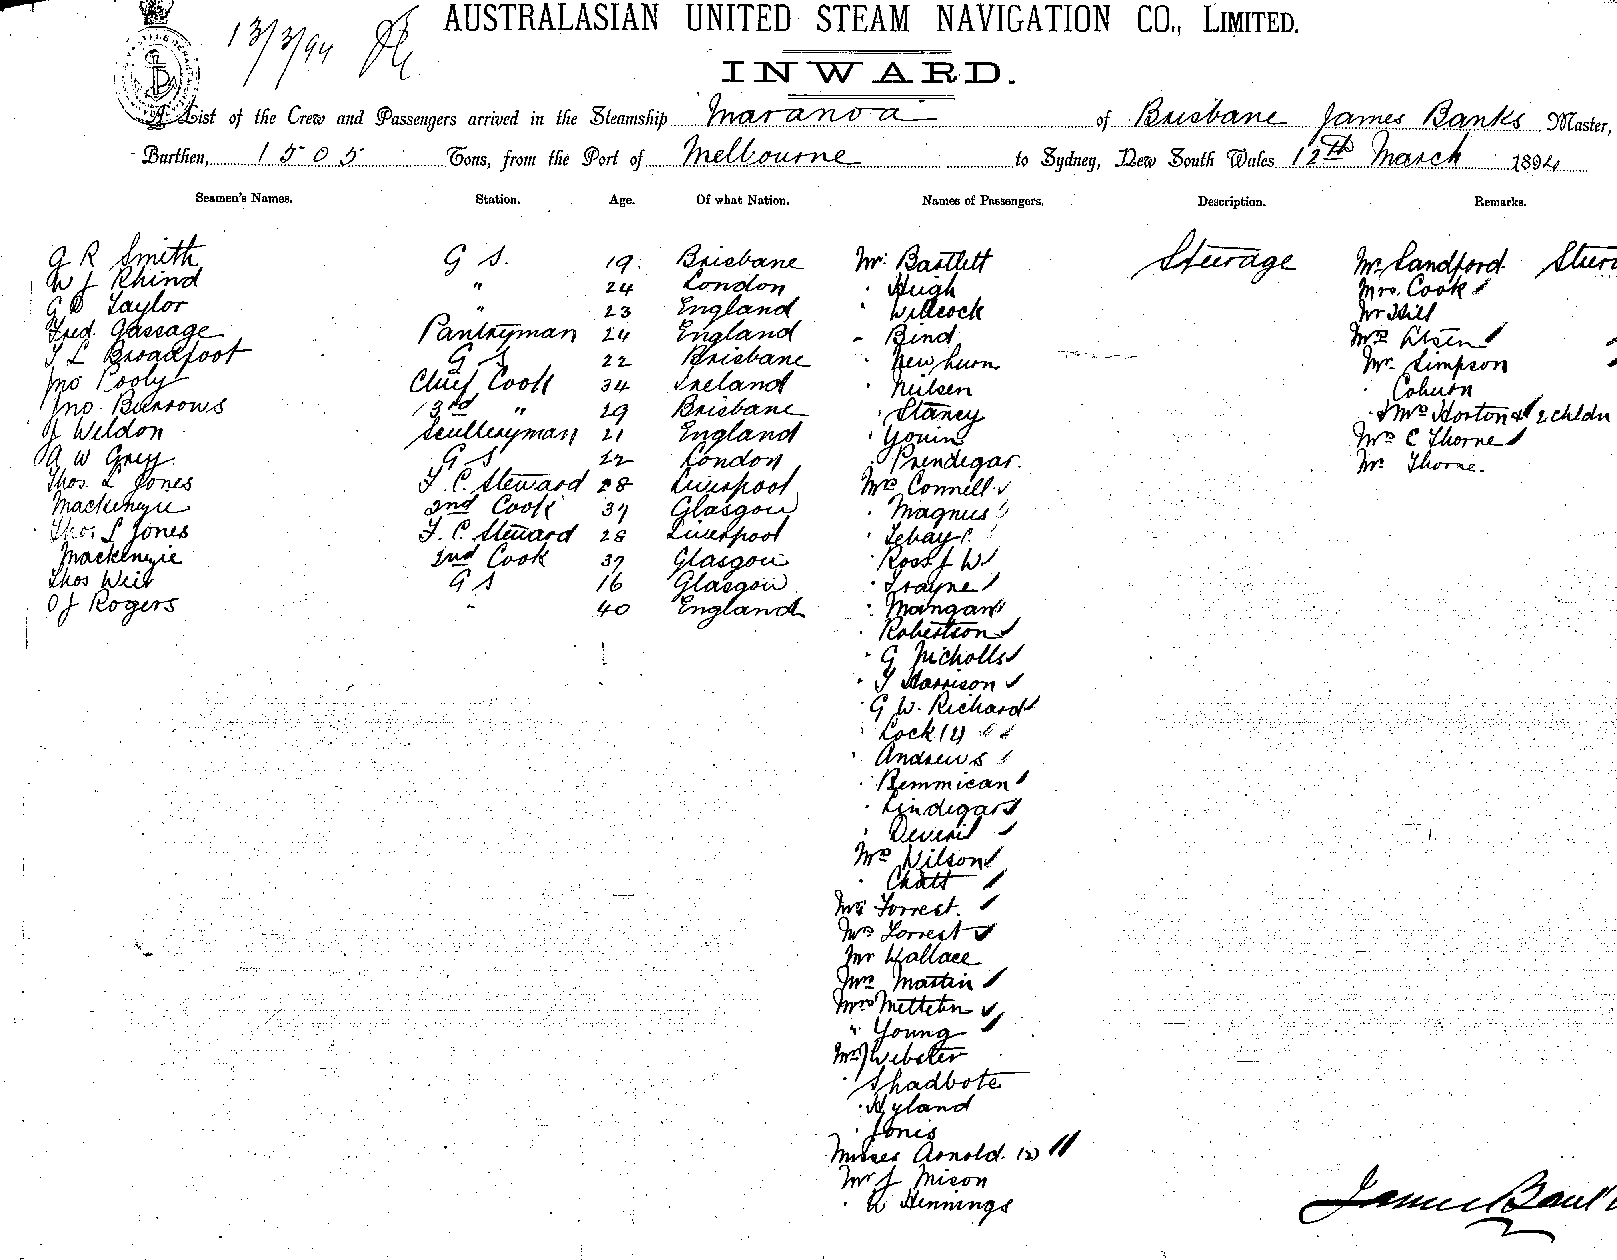 13/3/94
AUSTRALASIAN UNITED STEAM NAVIGATION CO., LIMITED.
INWARD.
A List of the Crew and Passengers arrived in the Steamship Maranoa of Brisbane James Banks Master,
Burthen, 1505 Tons, from the Port of Melbourne to Sydney, New South Wales 12th March 1894
Seamen's Names. Station. Age. Of what Nation. Names of Passengers. Description. Remarks.
G R Smith G S. 19 Brisbane Mr. Bartlett Steerage Mr Sandford
W J Rhind " 24 London " Hugh Mrs. Cook
Taylor " 23 England " Willcock Mr Hill
Fred. Gassage Pantryman 24 England " Bind Mrs
T L Broadfoot G S 22 Brisbane Mr. Simpson
Jno Pooly Chief Cook 34 Ireland " Neilsen
Jno. Burrows 3rd " 29 Brisbane " Stancy & Mrs Horton & 2 chldn
J Weldon Sculleryman 21 England Mrs C Thorne
A W Grey G S 22 London " Prendegar. Mr. Thorne.
Thos. L Jones F. C. Steward 28 Liverpool Mr Connell
Mackenzie 2nd Cook 37 Glasgow " Magnus
Thos L Jones F. C. Steward 28 Liverpool
Mackenzie 2nd Cook 37 Glasgow " Ross J W
Thos Weir G S 16 Glasgow " Trayne
O J Rogers " 40 England " Mangan
" Robertson
" G Nicholls
" T Harrison
G W. Richards
" Lock (4)
" Andrews
" Bemmican
" Lindegard
" Deveril
Mr Wilson
" Chatt
Mr Forrest.
Mrs Forrest
Mr Wallace
Mrs Martin
Mrs
" Young
Mr J Webster
" Shadbote
" Hyland
" Jones
Misses Arnold. (2)
Mr J Mison
" W Hennings
James Banks